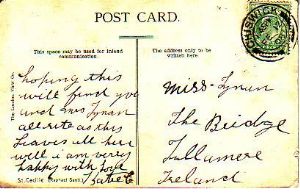 POST CARD.
This space may be used for inland
communication.
The address only to be
written here.
hoping this
will find you
and Mrs Tynan
all rite as this
leaves all here
will i am very
happy with Love
Katie
Miss Tynan
The Bridge
Tullamore
Ireland
The London View Co.
St. Cecilia
CHISWICK